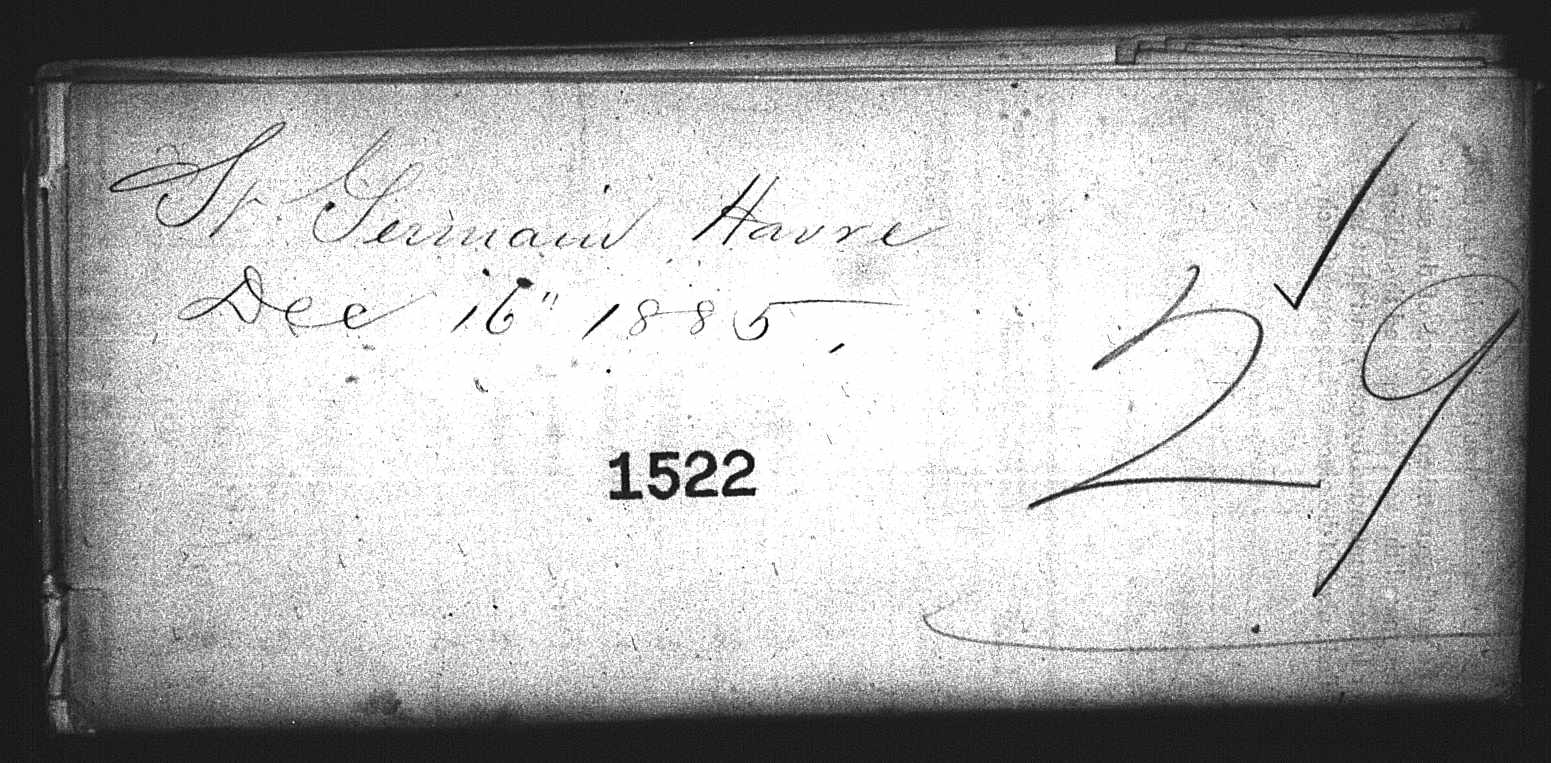 St Germain Havre
Dec 16" 1885,
29
1522